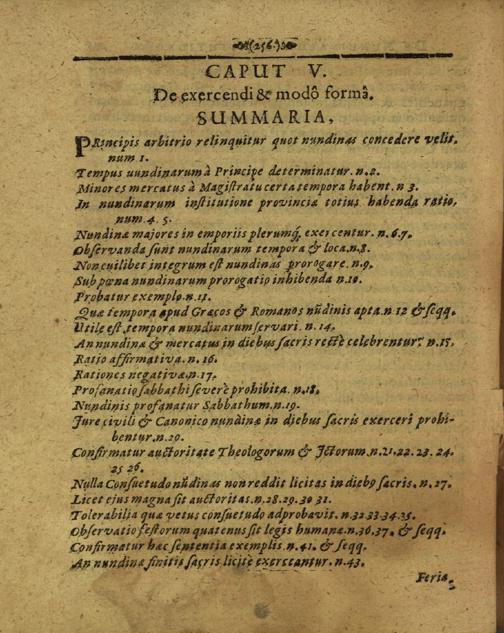 (256.)
CAPUT V.
De exercendi & modô formâ.
SUMMARIA,
PRincipis arbitrio relinquitur quot nundinas concedere velit.
num 1.
Tempus uundinarum à Principe determinatur. n. 2.
Minores mercatus à Magistratu certa tempora habent. n 3.
In nundinarum institutione provinciæ totius habenda ratio,
num. 4. 5.
Nundinæ majores in emporiis plerumq; exercentur. n. 6. 7.
Observanda sunt nundinarum tempora & loca. n. 8.
Non cuilibet integrum est nundinas prorogare. n. 9.
Sub pœna nundinarum prorogatio inhibenda n. 10.
Probatur exemplo. n. 11.
Quæ tempora apud Græcos & Romanos nūdinis apta. n 12 & seqq.
Utile est, tempora nundinarum servari. n. 14.
An nundinæ & mercatus in diebus sacris rectè celebrentur? n. 15.
Ratio affirmativa. n. 16.
Rationes negativæ. n. 17.
Profanatio sabbathi severè prohibita. n. 18.
Nundinis profanatur Sabbathum. n. 19.
Jure civili & Canonico nundinæ in diebus sacris exerceri prohi-
bentur. n. 20.
Confirmatur auctoritate Theologorum & JCtorum. n. 21. 22. 23. 24.
25 26.
Nulla Consuetudo nūdinas non reddit licitas in dieb9 sacris. n. 27.
Licet ejus magna sit auctoritas. n. 28. 29. 30 31.
Tolerabilia quæ vetus consuetudo adprobavit. n. 32 33. 34. 35.
Observatio festorum quatenus sit legis humanæ. n. 36. 37. & seqq.
Confirmatur hæc sententia exemplis. n. 41. & seqq.
An nundinæ finitis sacris licitè exerceantur. n. 43.
Feriæ